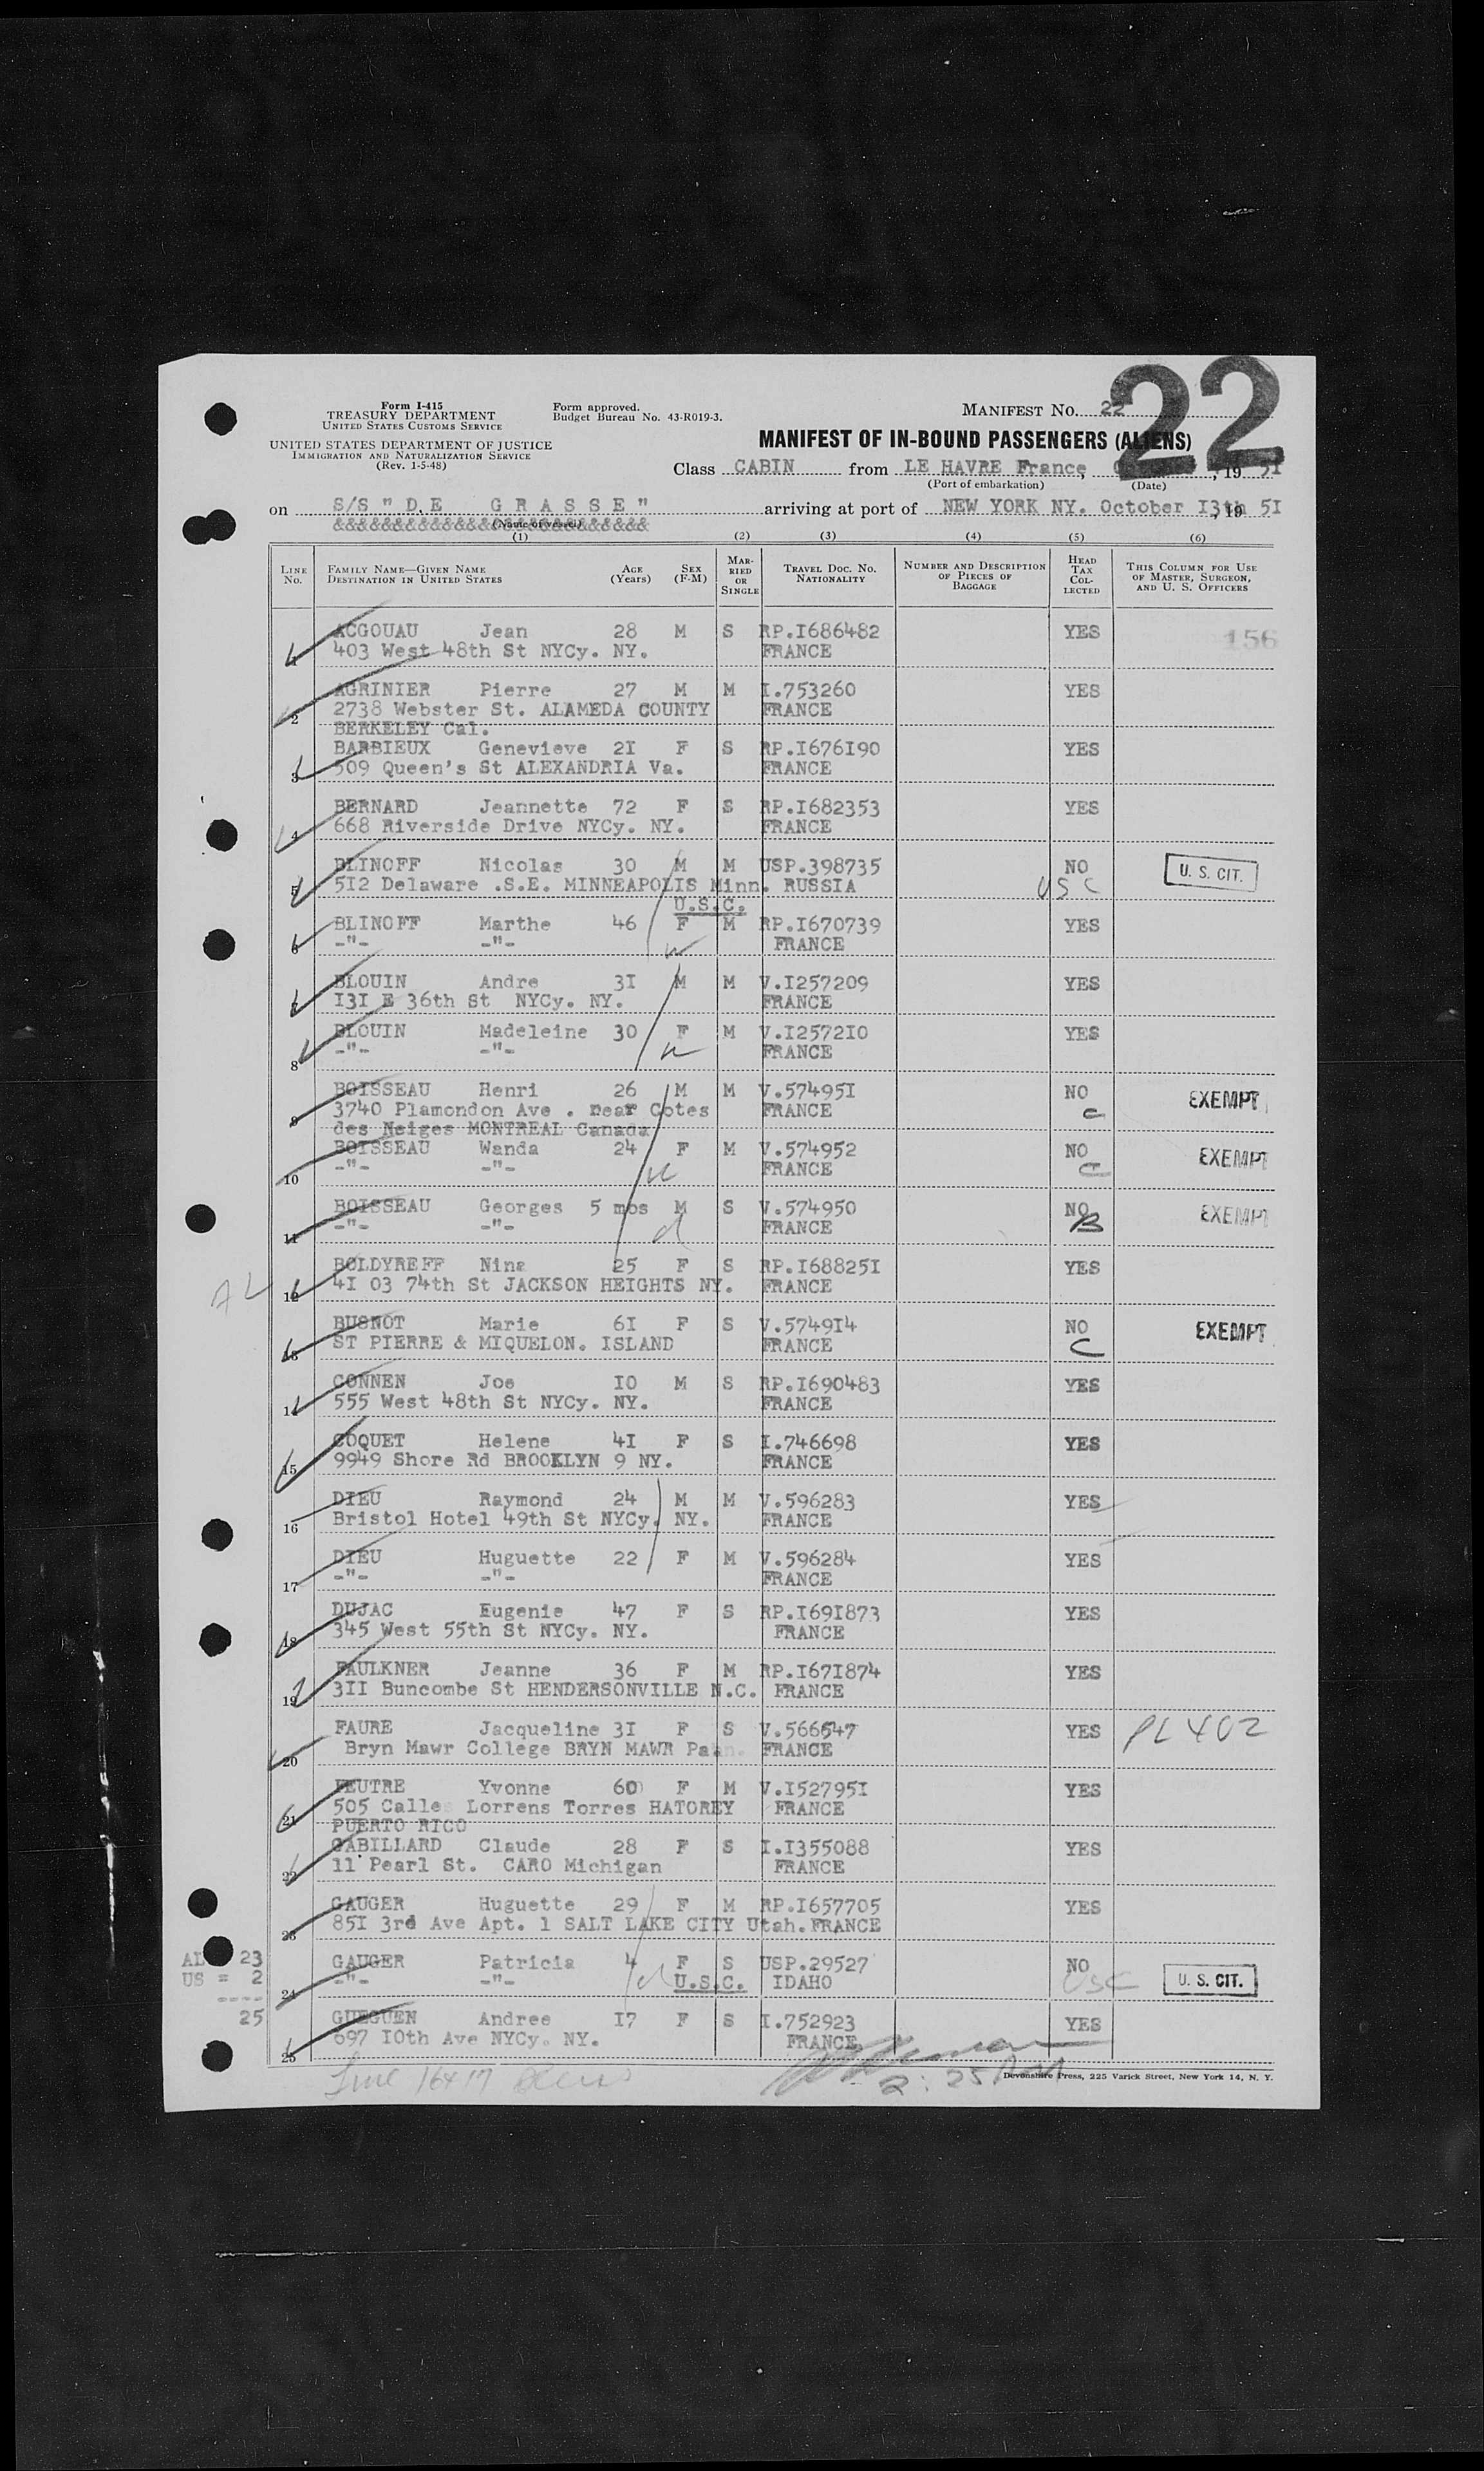 22
Form I-415
TREASURY DEPARTMENT
UNITED STATES CUSTOMS SERVICE
Form approved.
Budget Bureau No. 43-R019-3.
MANIFEST NO. 22
UNITED STATES DEPARTMENT OF JUSTICE
IMMIGRATION AND NATURALIZATION SERVICE
(Rev. 1-5-48)
MANIFEST OF IN-BOUND PASSENGERS (ALIENS)
Class CABIN from LE HAVRE France, , 19 51
(Port of embarkation) (Date)
on S/S " D.E G R A S S E " arriving at port of NEW YORK NY. October I3th 19 5I
&&&&&&&&&&&&&&&&&&&&&&&&&&
(Name of vessel)
(1) (2) (3) (4) (5) (6)
LINE No. FAMILY NAME—GIVEN NAME DESTINATION IN UNITED STATES AGE (Years) SEX (F-M) MARRIED OR SINGLE TRAVEL DOC. NO. NATIONALITY NUMBER AND DESCRIPTION OF PIECES OF BAGGAGE HEAD TAX COLLECTED THIS COLUMN FOR USE OF MASTER, SURGEON, AND U. S. OFFICERS
1 ACGOUAU Jean 28 M S RP.I686482 YES 156
403 West 48th St NYCy. NY. FRANCE
2 AGRINIER Pierre 27 M M I.753260 YES
2738 Webster St. ALAMEDA COUNTY FRANCE
BERKELEY Cal.
3 BARBIEUX Genevieve 2I F S RP.I676I90 YES
509 Queen's St ALEXANDRIA Va. FRANCE
4 BERNARD Jeannette 72 F S RP.I682353 YES
668 Riverside Drive NYCy. NY. FRANCE
5 BLINOFF Nicolas 30 M M USP.398735 NO U. S. CIT.
5I2 Delaware .S.E. MINNEAPOLIS Minn. RUSSIA USC
U.S.C.
6 BLINOFF Marthe 46 F M RP.I670739 YES
-"- -"- FRANCE
7 BLOUIN Andre 3I M M V.I257209 YES
I3I E 36th St NYCy. NY. FRANCE
8 BLOUIN Madeleine 30 F M V.I2572I0 YES
-"- -"- FRANCE
9 BOISSEAU Henri 26 M M V.57495I NO EXEMPT
3740 Plamondon Ave . near Cotes FRANCE C
des Neiges MONTREAL Canada
10 BOISSEAU Wanda 24 F M V.574952 NO EXEMPT
-"- -"- FRANCE C
11 BOISSEAU Georges 5 mos M S V.574950 NO EXEMPT
-"- -"- FRANCE B
12 BOLDYREFF Nina 25 F S RP.I68825I YES
4I 03 74th St JACKSON HEIGHTS NY. FRANCE
13 BUSNOT Marie 6I F S V.5749I4 NO EXEMPT
ST PIERRE & MIQUELON. ISLAND FRANCE C
14 CONNEN Joe I0 M S RP.I690483 YES
555 West 48th St NYCy. NY. FRANCE
15 COQUET Helene 4I F S I.746698 YES
9949 Shore Rd BROOKLYN 9 NY. FRANCE
16 DIEU Raymond 24 M M V.596283 YES
Bristol Hotel 49th St NYCy. NY. FRANCE
17 DIEU Huguette 22 F M V.596284 YES
-"- -"- FRANCE
18 DUJAC Eugenie 47 F S RP.I69I873 YES
345 West 55th St NYCy. NY. FRANCE
19 FAULKNER Jeanne 36 F M RP.I67I874 YES
3II Buncombe St HENDERSONVILLE N.C. FRANCE
20 FAURE Jacqueline 3I F S V.566547 YES PL 402
Bryn Mawr College BRYN MAWR FRANCE
21 FEUTRE Yvonne 60 F M V.I52795I YES
505 Calle Lorrens Torres HATOREY FRANCE
PUERTO RICO
22 GABILLARD Claude 28 F S I.I355088 YES
11 Pearl St. CARO Michigan FRANCE
23 GAUGER Huguette 29 F M RP.I657705 YES
85I 3rd Ave Apt. 1 SALT LAKE CITY Utah. FRANCE
24 GAUGER Patricia 4 F S USP.29527 NO U. S. CIT.
-"- -"- U.S.C. IDAHO USC
AL 23
US = 2
----
25
25 GUEGUEN Andree I7 F S I.752923 YES
697 I0th Ave NYCy. NY. FRANCE
Line 16 & 17
2: 25
Devonshire Press, 225 Varick Street, New York 14, N. Y.